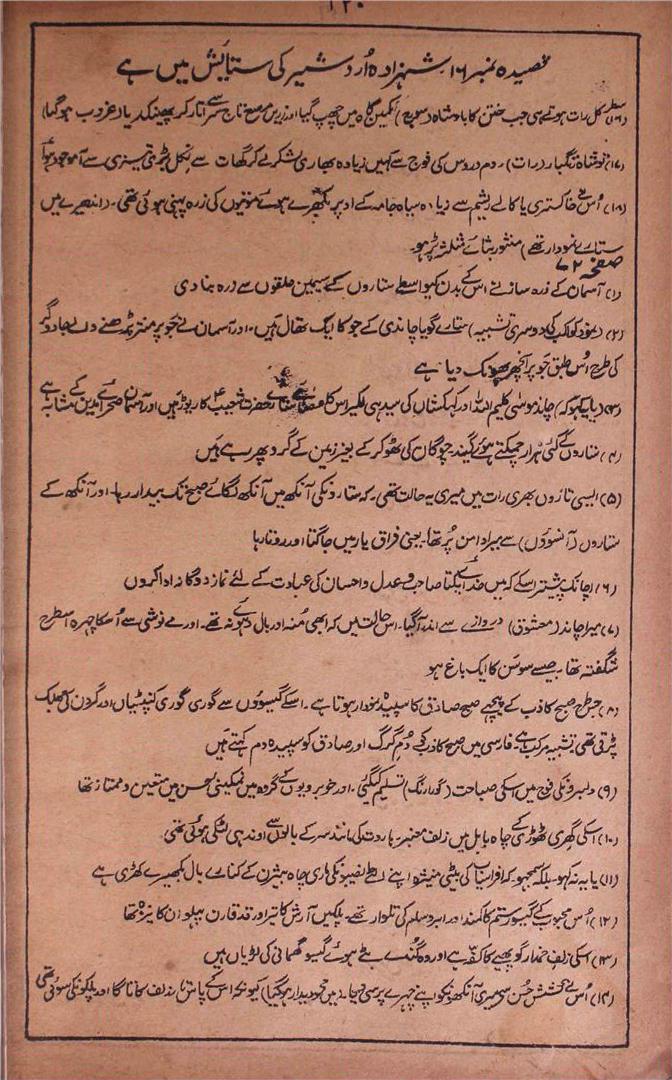 ۱۲۰
قصیدہ نمبر ۱۶۔ شہزادہ اُردشیر کی ستایٔش میں ہے
(۱۶) کل رات ہوتے ہی جب ختن کا بادشاہ (سورج) کمین گاہ میں چھپ گیا اور زریں مرصع تاج سر سے اتار کر پھینکدیا۔ غروب ہو گیا
(۱۷) تو شاہ زنگبار (رات) روم و روس کی فوج سے کہیں زیادہ بھاری لشکر لے کر گھات سے نکل بڑی تیزی سے آ موجود ہوا
(۱۸) اُس نے خاکستری یا کالے یشم سے زیادہ سیاہ جامہ کے اوپر بکھرے ہوئے موتیوں کی زرہ پہنی ہوئی تھی۔ (اندھیرے میں
ستارے نمودار تھے) منثور بثائے مثلثہ پڑہو۔
صفحہ ۷۲
(۱) آسمان کے زرہ ساز نے اس کے بدن کیواسطے ستاروں کے سیمین حلقوں سے زرہ بنا دی
(۲) (عود کو کب کی دوسری تشبیہ) ستارے گویا چاندی کے جو کا ایک تھال ہیں۔ اور آسمان نے جو پر منتر پڑھنے والے جادوگر
کی طرح اُس طبق جَو پر انچھر پھونک دیا ہے
(۳) (یا یہ کہو کہ) چاند موسیٰ کلیم اللہ اور کہکشاں کی سیدہی لکیر اس کا عصا ہے ستارے حضرت شعیب ؑ کا ریوڑ ہیں اور آسمان صحرائے مدین کے مشابہ ہے
(۴) ستاروں کے کئی ہزار چمکتے ہوئے گیند۔ چوگان کی ٹھوکر کے بغیر زمین کے گرد پھر رہے ہیں
(۵) ایسی تاروں بھری رات میں میری یہ حالت تھی۔ کہ ستارونکی آنکھ میں آنکھ لگائے صبح تک بیدار رہا۔ اور آنکھ کے
ستاروں (آنسوؤں) سے میرا دامن پُر تھا۔ یعنی فراق یار میں جاگتا اور روتا رہا
(۶) اچانک پیشتر اسکے کہ میں خدائے یکتا صاحب عدل و احسان کی عبادت کے لئے نماز دوگانہ ادا کروں
(۷) میرا چاند (معشوق) دروازے سے اندر آ گیا۔ اس حالت میں کہ ابھی مُنہ اور بال دہوئے نہ تھے۔ اور مے نوشی سے اُسکا چہرہ اسطرح
شگفتہ تھا۔ جیسے سوسن کا ایک باغ ہو
(۸) جسطرح صبح کاذب کے پیچھے صبح صادق کا سپیدہ نمودار ہوتا ہے۔ اسکے گیسوؤں سے گوری گوری کنپٹیاں اور گردن کی جھلک
پڑتی تھی تشبیہ مرکب ہے۔ فارسی میں صبح کاذب کو دُمِ گرگ اور صادق کو سپیدہ دم کہتے ہیں
(۹) دلبرونکی فوج میں اسکی صباحت (گورا رنگ) تسلیم کی گئی۔ اور خوبرویوں کے گروہ میں نمکینیٔ حسن میں متعین و ممتاز تھا
(۱۰) اسکی گہری ٹھوڑی کے چاہ بابل میں زلف معنبر۔ ہاروت کی مانند سر کے بالوں سے اوندہی لٹکی ہوئی تھی
(۱۱) یا یہ نہ کہو۔ بلکہ سمجھو۔ کہ افراسیاب کی بیٹی منیژہ اپنے نصیبونکی ماری چاہ بیژن کے کنارے بال بکھیرے کھڑی ہے
(۱۲) اُس محبوب کے گیسو رستم کا کمند اور ابرو سلم کی تلوار تھے۔ پلکیں آرش کا تیر اور قد قارن پہلوان کا نیزہ تھا
(۱۳) اسکی زلف خمدار گوپھیے کا کفّہ ہے اور وہ گُندے بٹے ہوئے گیسو گھمانی کی لڑیاں ہیں
(۱۴) اُس نے کشش حُسن سے میری آنکھونکو اپنے چہرے پر سی دیا۔ (میں محو دیدار ہو گیا) کیونکہ اس کے پاس تار زلف کا تاگا اور پلکونکی سوئی تھی